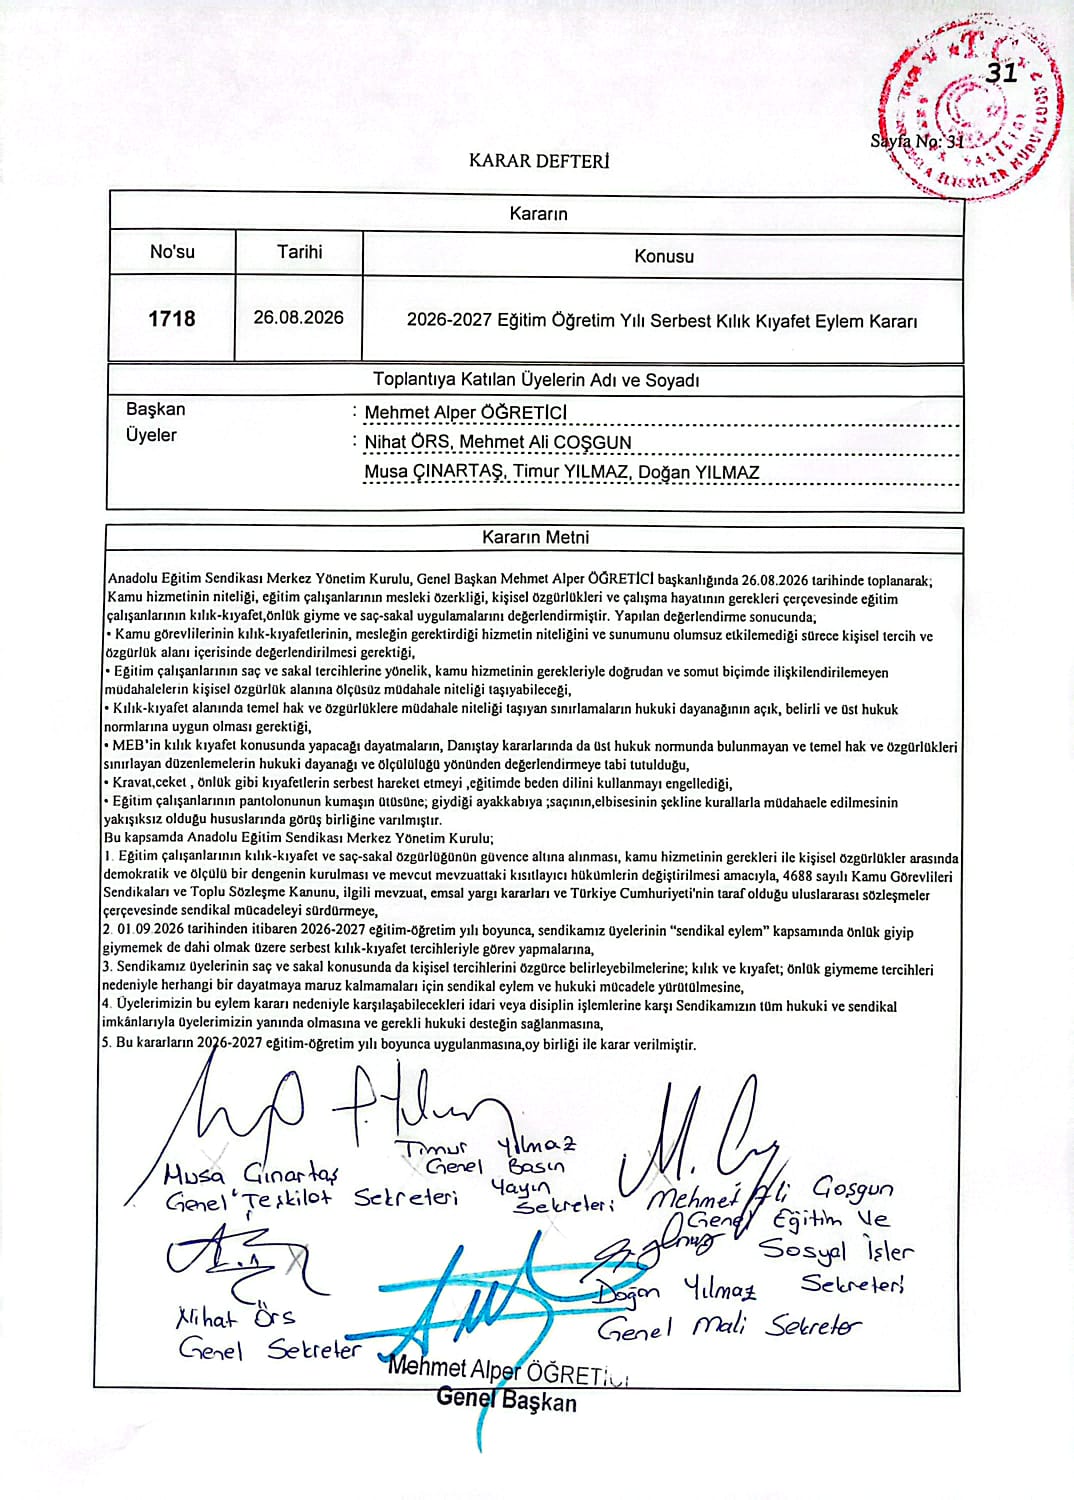 T.C.
31
Sayfa No: 31
KARAR DEFTERİ
Kararın
No'su
Tarihi
Konusu
1718
26.08.2026
2026-2027 Eğitim Öğretim Yılı Serbest Kılık Kıyafet Eylem Kararı
Toplantıya Katılan Üyelerin Adı ve Soyadı
Başkan : Mehmet Alper ÖĞRETİCİ
Üyeler : Nihat ÖRS, Mehmet Ali COŞGUN
Musa ÇINARTAŞ, Timur YILMAZ, Doğan YILMAZ
Kararın Metni
Anadolu Eğitim Sendikası Merkez Yönetim Kurulu, Genel Başkan Mehmet Alper ÖĞRETİCİ başkanlığında 26.08.2026 tarihinde toplanarak;
Kamu hizmetinin niteliği, eğitim çalışanlarının mesleki özerkliği, kişisel özgürlükleri ve çalışma hayatının gerekleri çerçevesinde eğitim
çalışanlarının kılık-kıyafet,önlük giyme ve saç-sakal uygulamalarını değerlendirmiştir. Yapılan değerlendirme sonucunda;
• Kamu görevlilerinin kılık-kıyafetlerinin, mesleğin gerektirdiği hizmetin niteliğini ve sunumunu olumsuz etkilemediği sürece kişisel tercih ve
özgürlük alanı içerisinde değerlendirilmesi gerektiği,
• Eğitim çalışanlarının saç ve sakal tercihlerine yönelik, kamu hizmetinin gerekleriyle doğrudan ve somut biçimde ilişkilendirilemeyen
müdahalelerin kişisel özgürlük alanına ölçüsüz müdahale niteliği taşıyabileceği,
• Kılık-kıyafet alanında temel hak ve özgürlüklere müdahale niteliği taşıyan sınırlamaların hukuki dayanağının açık, belirli ve üst hukuk
normlarına uygun olması gerektiği,
• MEB'in kılık kıyafet konusunda yapacağı dayatmaların, Danıştay kararlarında da üst hukuk normunda bulunmayan ve temel hak ve özgürlükleri
sınırlayan düzenlemelerin hukuki dayanağı ve ölçülülüğü yönünden değerlendirmeye tabi tutulduğu,
• Kravat,ceket , önlük gibi kıyafetlerin serbest hareket etmeyi ,eğitimde beden dilini kullanmayı engellediği,
• Eğitim çalışanlarının pantolonunun kumaşın ütüsüne; giydiği ayakkabıya ;saçının,elbisesinin şekline kurallarla müdahaele edilmesinin
yakışıksız olduğu hususlarında görüş birliğine varılmıştır.
Bu kapsamda Anadolu Eğitim Sendikası Merkez Yönetim Kurulu;
1. Eğitim çalışanlarının kılık-kıyafet ve saç-sakal özgürlüğünün güvence altına alınması, kamu hizmetinin gerekleri ile kişisel özgürlükler arasında
demokratik ve ölçülü bir dengenin kurulması ve mevcut mevzuattaki kısıtlayıcı hükümlerin değiştirilmesi amacıyla, 4688 sayılı Kamu Görevlileri
Sendikaları ve Toplu Sözleşme Kanunu, ilgili mevzuat, emsal yargı kararları ve Türkiye Cumhuriyeti'nin taraf olduğu uluslararası sözleşmeler
çerçevesinde sendikal mücadeleyi sürdürmeye,
2. 01.09.2026 tarihinden itibaren 2026-2027 eğitim-öğretim yılı boyunca, sendikamız üyelerinin “sendikal eylem” kapsamında önlük giyip
giymemek de dahi olmak üzere serbest kılık-kıyafet tercihleriyle görev yapmalarına,
3. Sendikamız üyelerinin saç ve sakal konusunda da kişisel tercihlerini özgürce belirleyebilmelerine; kılık ve kıyafet; önlük giymeme tercihleri
nedeniyle herhangi bir dayatmaya maruz kalmamaları için sendikal eylem ve hukuki mücadele yürütülmesine,
4. Üyelerimizin bu eylem kararı nedeniyle karşılaşabilecekleri idari veya disiplin işlemlerine karşı Sendikamızın tüm hukuki ve sendikal
imkânlarıyla üyelerimizin yanında olmasına ve gerekli hukuki desteğin sağlanmasına,
5. Bu kararların 2026-2027 eğitim-öğretim yılı boyunca uygulanmasına,oy birliği ile karar verilmiştir.
Musa Çınartaş
Genel Teşkilat Sekreteri
Timur Yılmaz
Genel Basın
Yayın
Sekreteri
Mehmet Ali Coşgun
Genel Eğitim ve
Sosyal İşler
Sekreteri
Nihat Örs
Genel Sekreter
Doğan Yılmaz
Genel Mali Sekreter
Mehmet Alper ÖĞRETİCİ
Genel Başkan